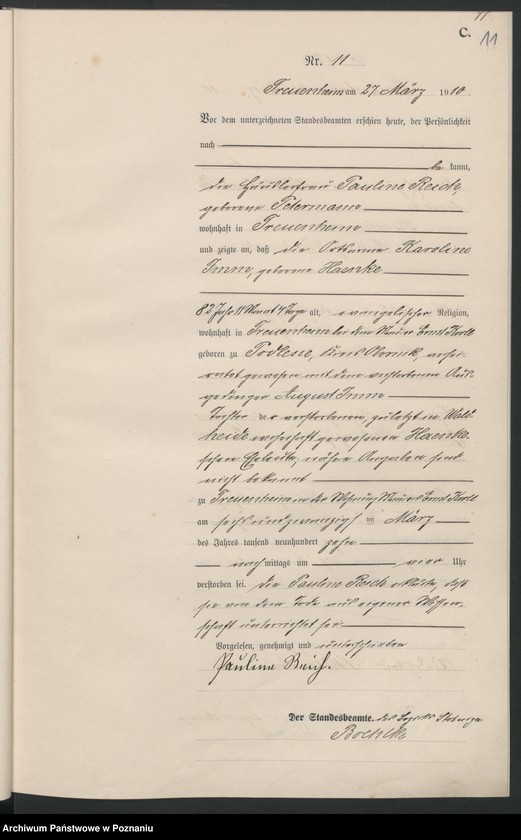 11
C.
11
Nr. 11
Treuenheim am 27 März 1910.
Vor dem unterzeichneten Standesbeamten erschien heute, der Persönlichkeit
nach
be kannt,
die Häuslerfrau Pauline Reich,
geborene Petermann
wohnhaft in Treuenheim
und zeigte an, daß die Ortsarme Karoline
Imm, geborene Haenke
82 Jahr 11 Monat 4 Tage alt, evangelischer Religion,
wohnhaft in Treuenheim bei dem Ernst
geboren zu Podlesie, Kreis Obornik, verhei-
ratet gewesen mit dem verstorbenen Aus-
gedinger August Imm
Tochter der verstorbenen, zuletzt in Wald
heide wohnhaft gewesenen Haenke
schen Eheleute, nähere Angaben sind
nicht bekannt
zu Treuenheim in der Wohnung Ernst
am sechsundzwanzigsten März
des Jahres tausend neunhundert zehn
nach mittags um vier Uhr
verstorben sei. Die Pauline Reich erklärte, daß
sie von dem Tode aus eigener Wissen-
schaft unterrichtet sei
Vorgelesen, genehmigt und unterschrieben
Pauline Reich.
Der Standesbeamte. des Bezirks
Archiwum Państwowe w Poznaniu